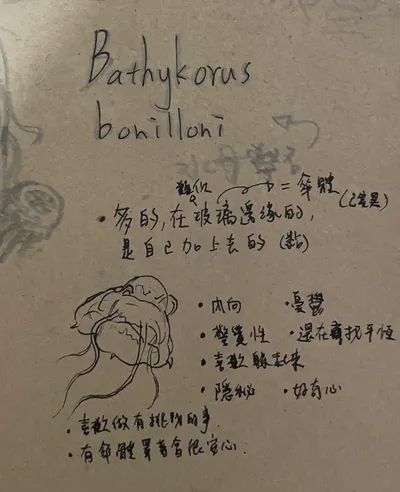 Bathykorus
bonilloni
水母學名
類似 = 傘體
•多的,在玻璃邊緣的, (已變異)
是自己加上去的(黏)
•內向 •憂鬱
•警覺性 •還在尋找平恆
•喜歡躲起來
•隱祕 •好奇心
•喜歡做有挑戰的事.
•有傘體罩著會很安心.